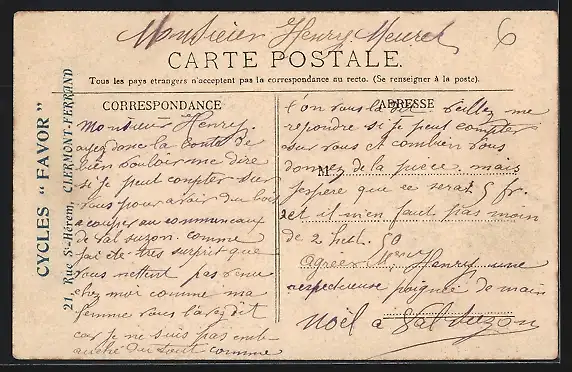 Monsieur Henry Meuret
6
CARTE POSTALE.
Tous les pays étrangers n'acceptent pas la correspondance au recto. (Se renseigner à la poste).
CORRESPONDANCE
Monsieur Henry.
ayez donc la bonté de
bien vouloir me dire
si je peut compter sur
vous pour avoir du bois
a couper au communeaux
de Val suzon. comme
jai ete très surprit que
vous nettent pas venu
chez moi comme ma
femme vous lavez dit
car je ne suis pas emb-
auché du tout comme
ADRESSE
l'on vous la dit. veillez me
repondre si je peut compter
sur vous et combien vous
M
donnez de la pièce. mais
jespere que ce serat 5 fr.
et il m'en faut pas moin
de 2 50
agréer Mr Henry une
respectueuse poignée de main
Noël a Val Suzon
CYCLES "FAVOR"
21, Rue St-Hérem, CLERMONT-FERRAND